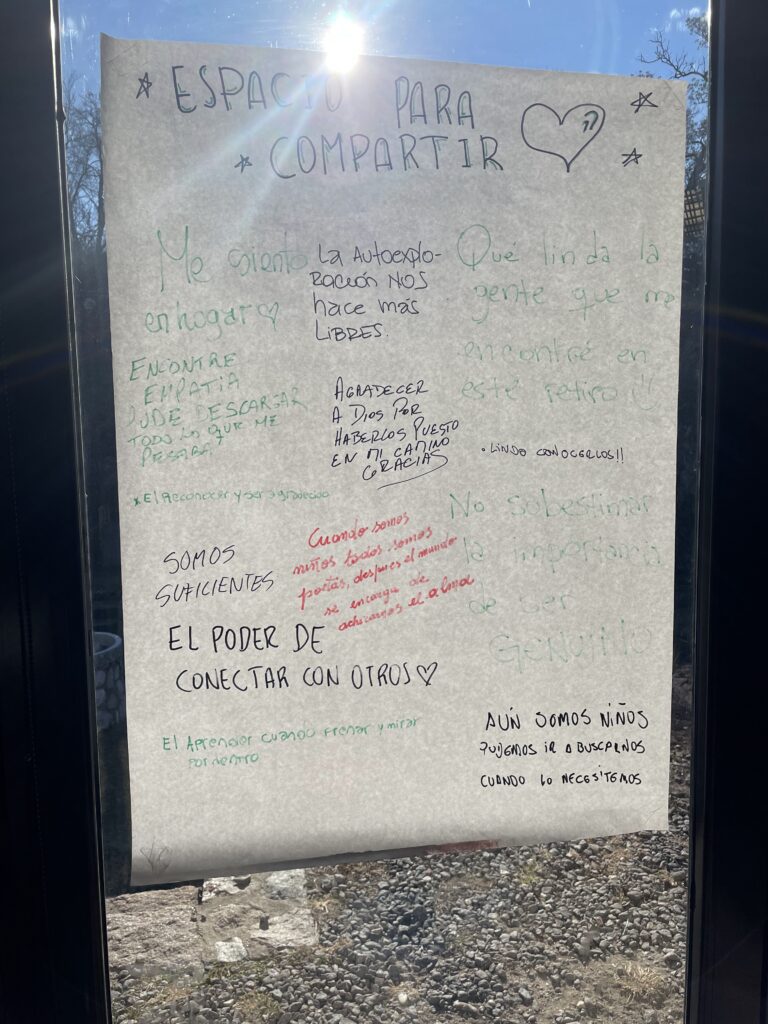 ESPACIO PARA
COMPARTIR
Me siento
en hogar
La Autoexplo-
Ración NOS
hace más
LIBRES.
Qué linda la
gente que me
encontré en
esté retiro
ENCONTRE
EMPATIA
PUDE DESCARGAR
TODO LO QUE ME
PESABA
AGRADECER
A DIOS POR
HABERLOS PUESTO
EN MI CAMINO
GRACIAS
• LINDO CONOCERLOS!!
* El Reconocer y ser agradecido
No subestimar
la importancia
de ser
GENUINO
SOMOS
SUFICIENTES
Cuando somos
niños todos somos
poetas, despues el mundo
se encarga de
achicarnos el alma
EL PODER DE
CONECTAR CON OTROS
El Aprender cuando frenar y mirar
por dentro
AÚN SOMOS NIÑOS
PUDEMOS IR A BUSCARNOS
CUANDO LO NECESITEMOS